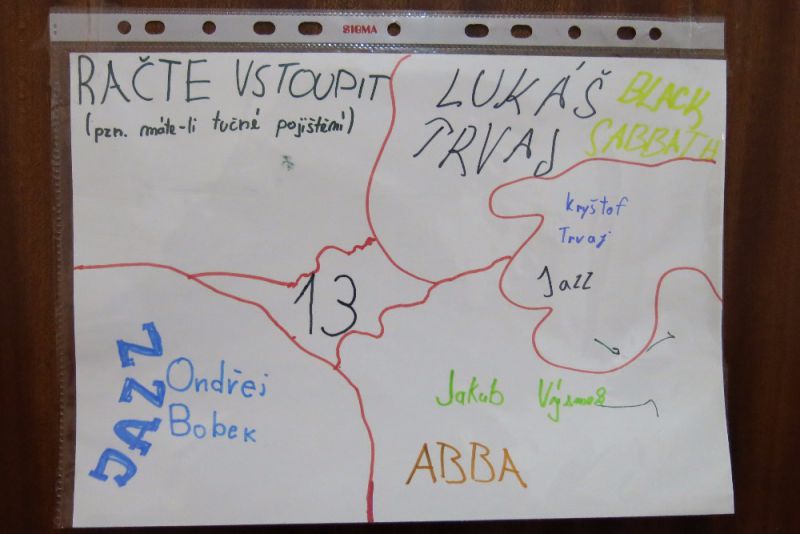 SIGMA
RAČTE VSTOUPIT
(pzn. máte-li tučné pojištění)
LUKÁŠ
TRVAJ
BLACK
SABBATH
Kryštof
Trvaj
Jazz
13
JAZZ
Ondřej
Bobek
Jakub
ABBA